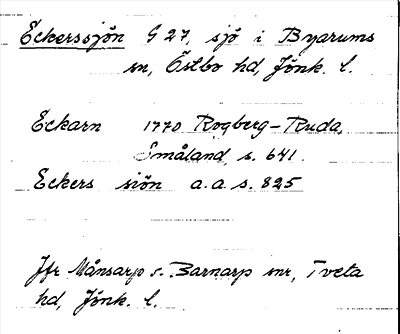 Eckerssjön G 27, sjö i Byarums
sn, Östbo hd, Jönk. l.
Eckarn 1770 Rogberg-Ruda,
Småland s. 641.
Eckers siön a.a. s. 825
Jfr Månsarp o. Barnarp snr, Tveta
hd, Jönk. l.